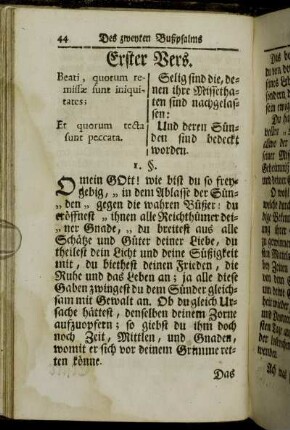 44 Des zweyten Bußpsalms
Erster Vers.
Beati, quorum re-
missæ sunt iniqui-
tates:
Et quorum tecta
sunt peccata.
Selig sind die, de-
nen ihre Missetha-
ten sind nachgelas-
sen:
Und deren Sün-
den sind bedeckt
worden.
1. §.
O mein GOtt! wie bist du so frey-
gebig, „ in dem Ablasse der Sün-
„ den „ gegen die wahren Büßer: du
eröffnest „ ihnen alle Reichthümer dei-
ner Gnade, „ du breitest aus alle
Schätze und Güter deiner Liebe, du
theilest dein Licht und deine Süßigkeit
mit, du biethest deinen Frieden, die
Ruhe und das Leben an; ja alle diese
Gaben zwingest du dem Sünder gleich-
sam mit Gewalt an. Ob du gleich Ur-
sache hättest, denselben deinem Zorne
aufzuopfern; so giebst du ihm doch
noch Zeit, Mittlen, und Gnaden,
womit er sich vor deinem Grimme ret-
ten könne.
Das